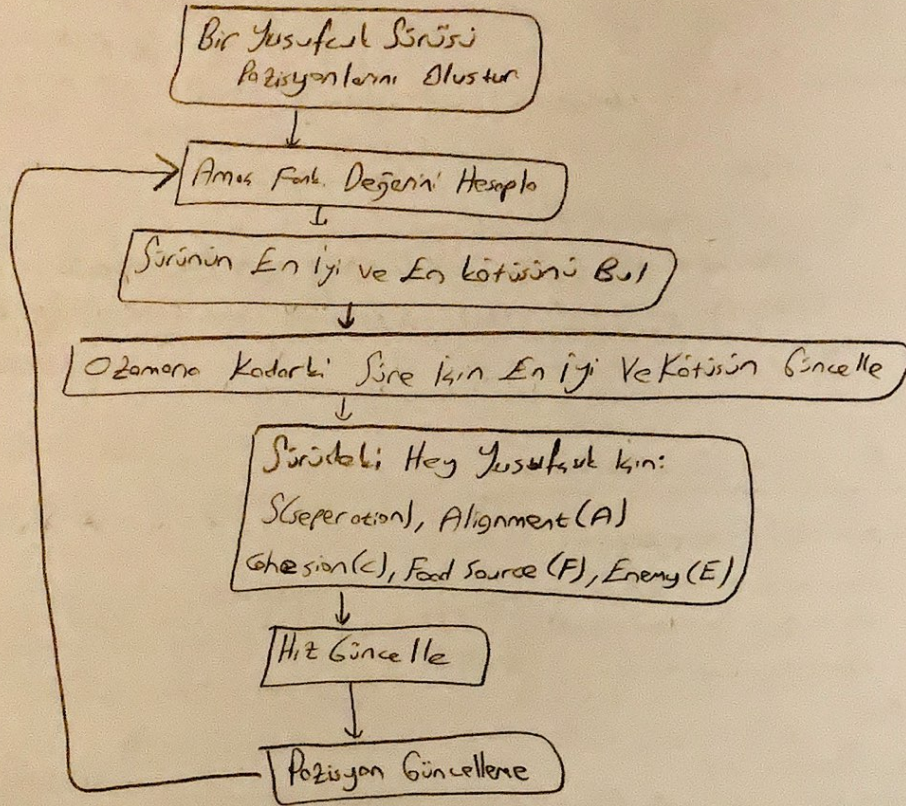 Bir Yusufcuk Sürüsü
Pozisyonlarını Oluştur
Amaç Fonk. Değerini Hesapla
Sürünün En İyi ve En kötüsünü Bul
O zamana Kadarki Süre İçin En İyi Ve Kötüsün Güncelle
Sürüdeki Hey Yusufçuk İçin:
S(seperation), Alignment(A)
Cohesion(C), Food Source (F), Enemy(E)
Hız Güncelle
Pozisyon Güncelleme